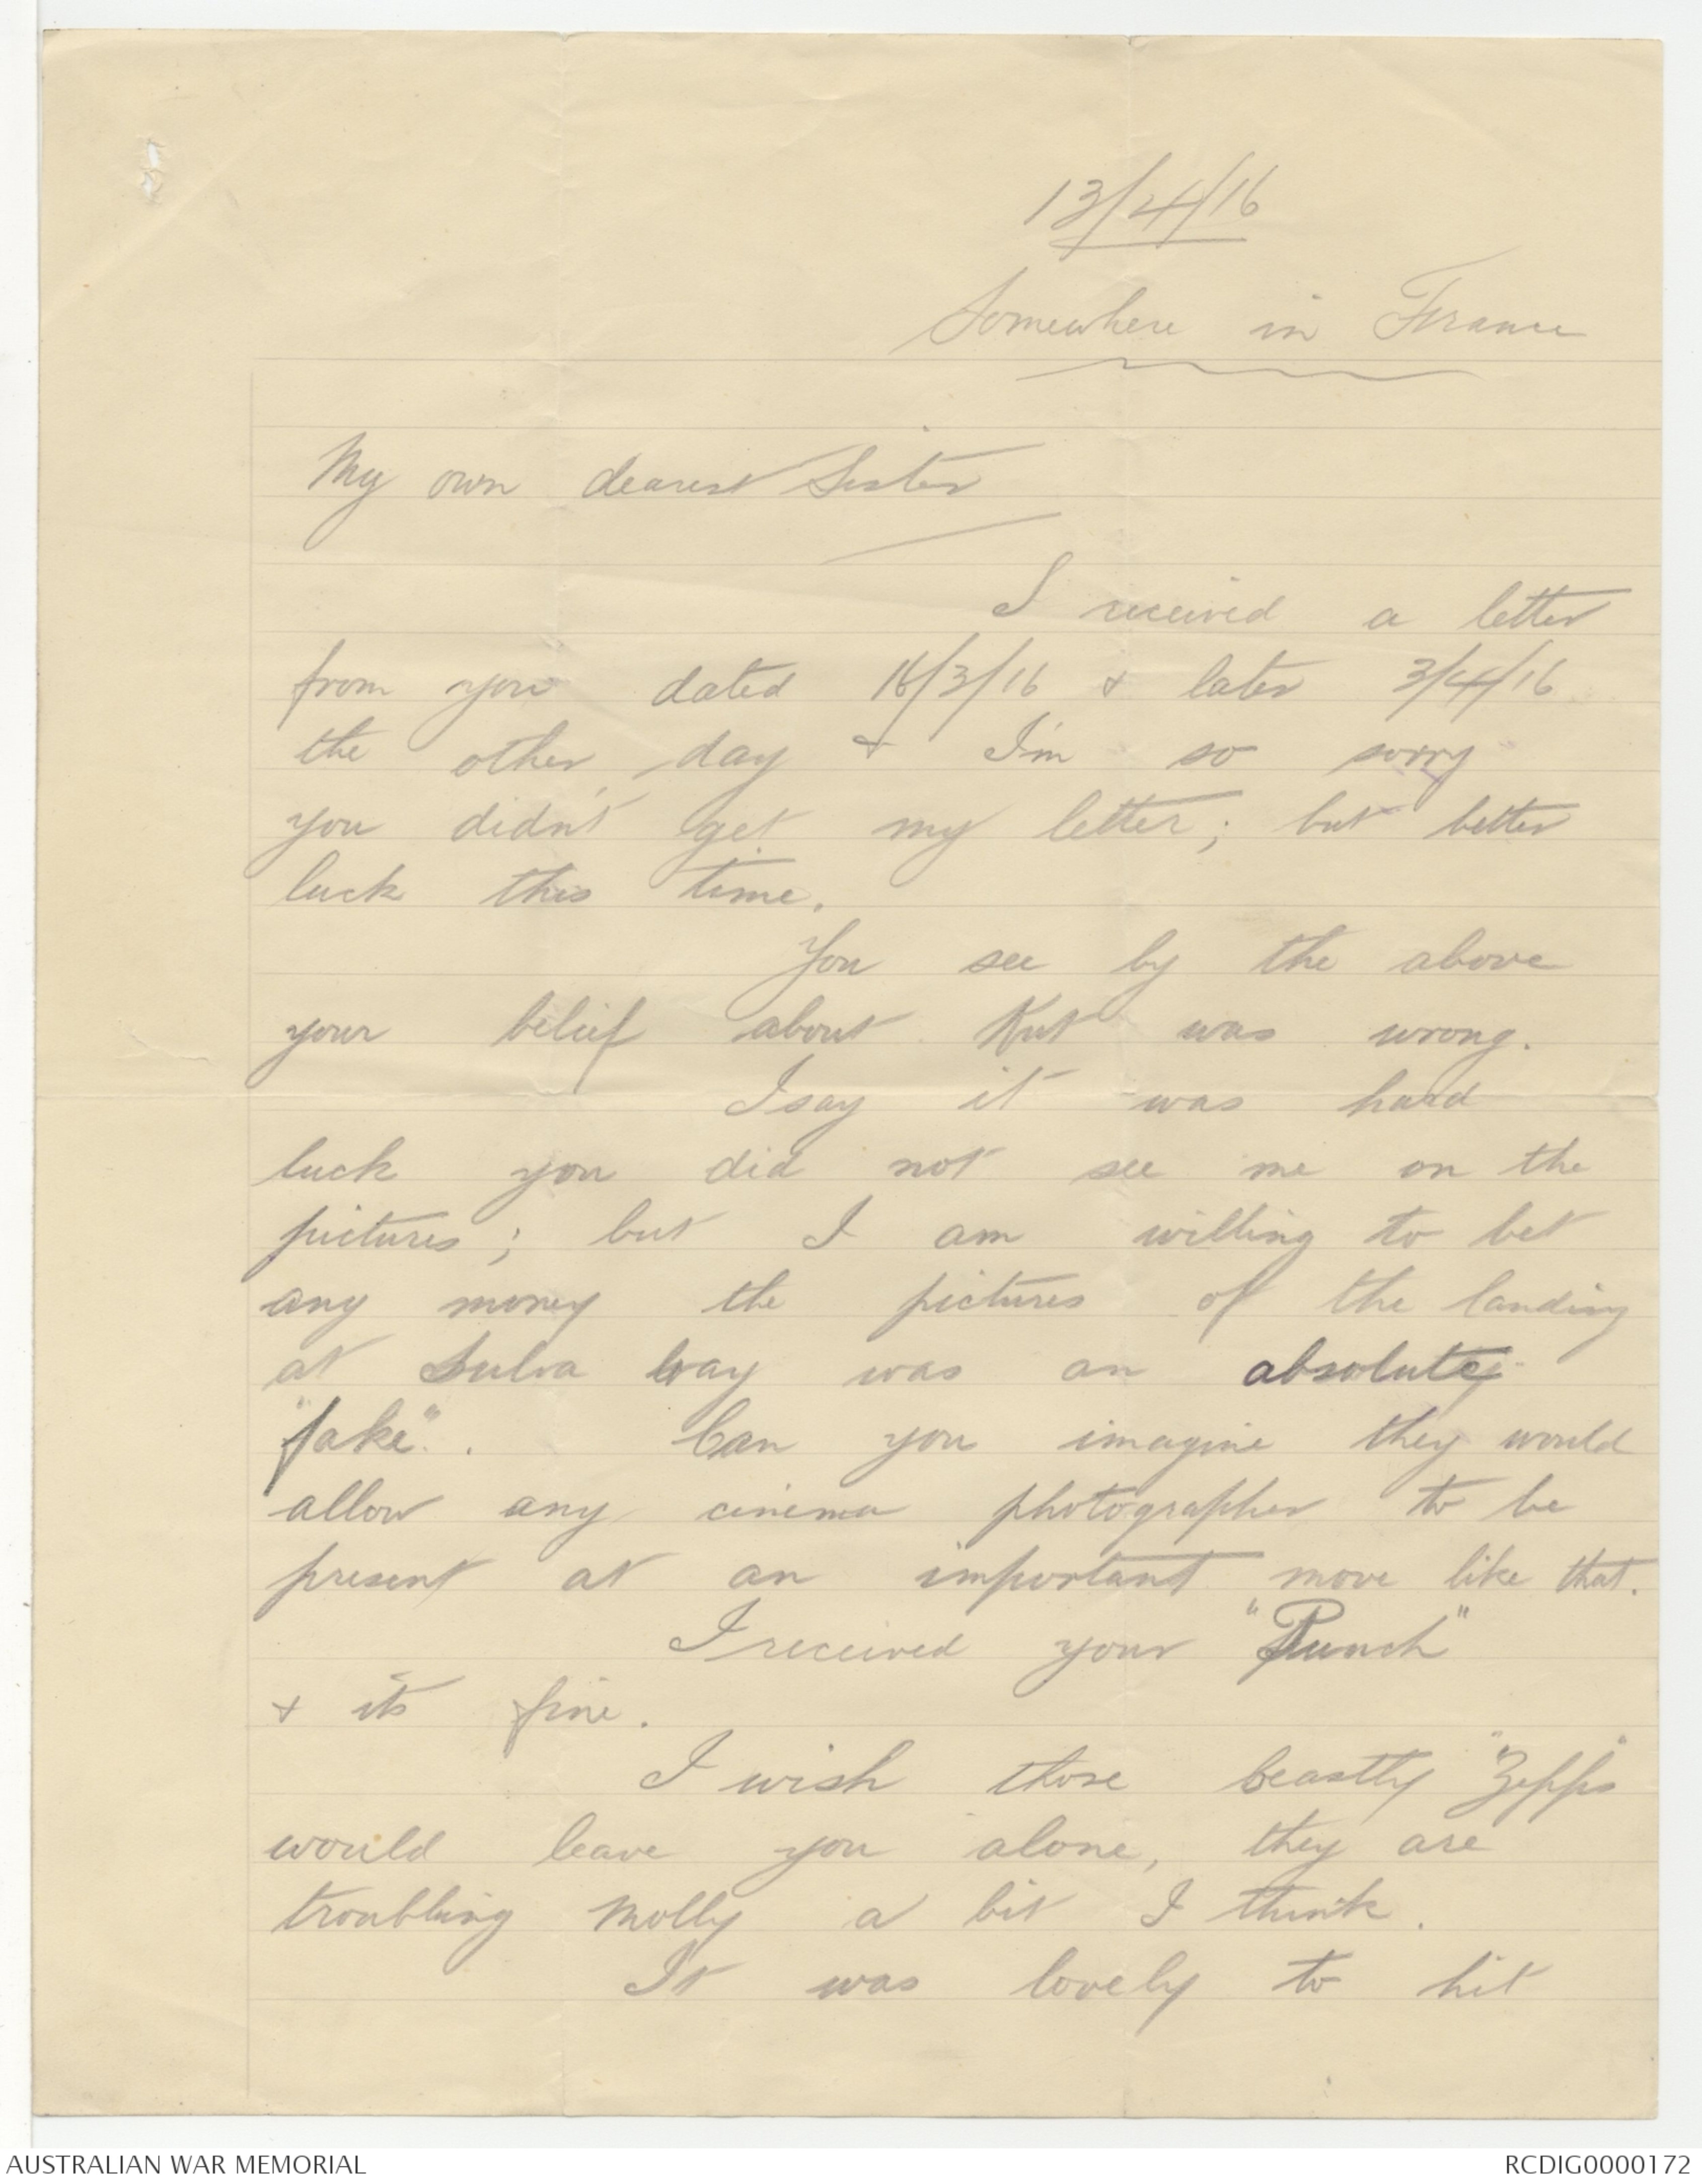 13/4/16
Somewhere in France
My own dearest Sister
I received a letter
from you dated 18/3/16 & later 3/4/16
the other day & I'm so sorry
you didn't get my letter; but better
luck this time.
You see by the above
your belief about Kut was wrong.
I say it was hard
luck you did not see me on the
pictures; but I am willing to bet
any money the pictures of the landing
at Sulva bay was an absolute
"fake".
Can you imagine they would
allow any cinema photographer to be
present at an important move like that.
I received your "Punch"
& its fine.
I wish those beastly "Zepps"
would leave you alone, they are
troubling Molly a bit I think.
It was lovely to hit
AUSTRALIAN WAR MEMORIAL
RCDIG0000172